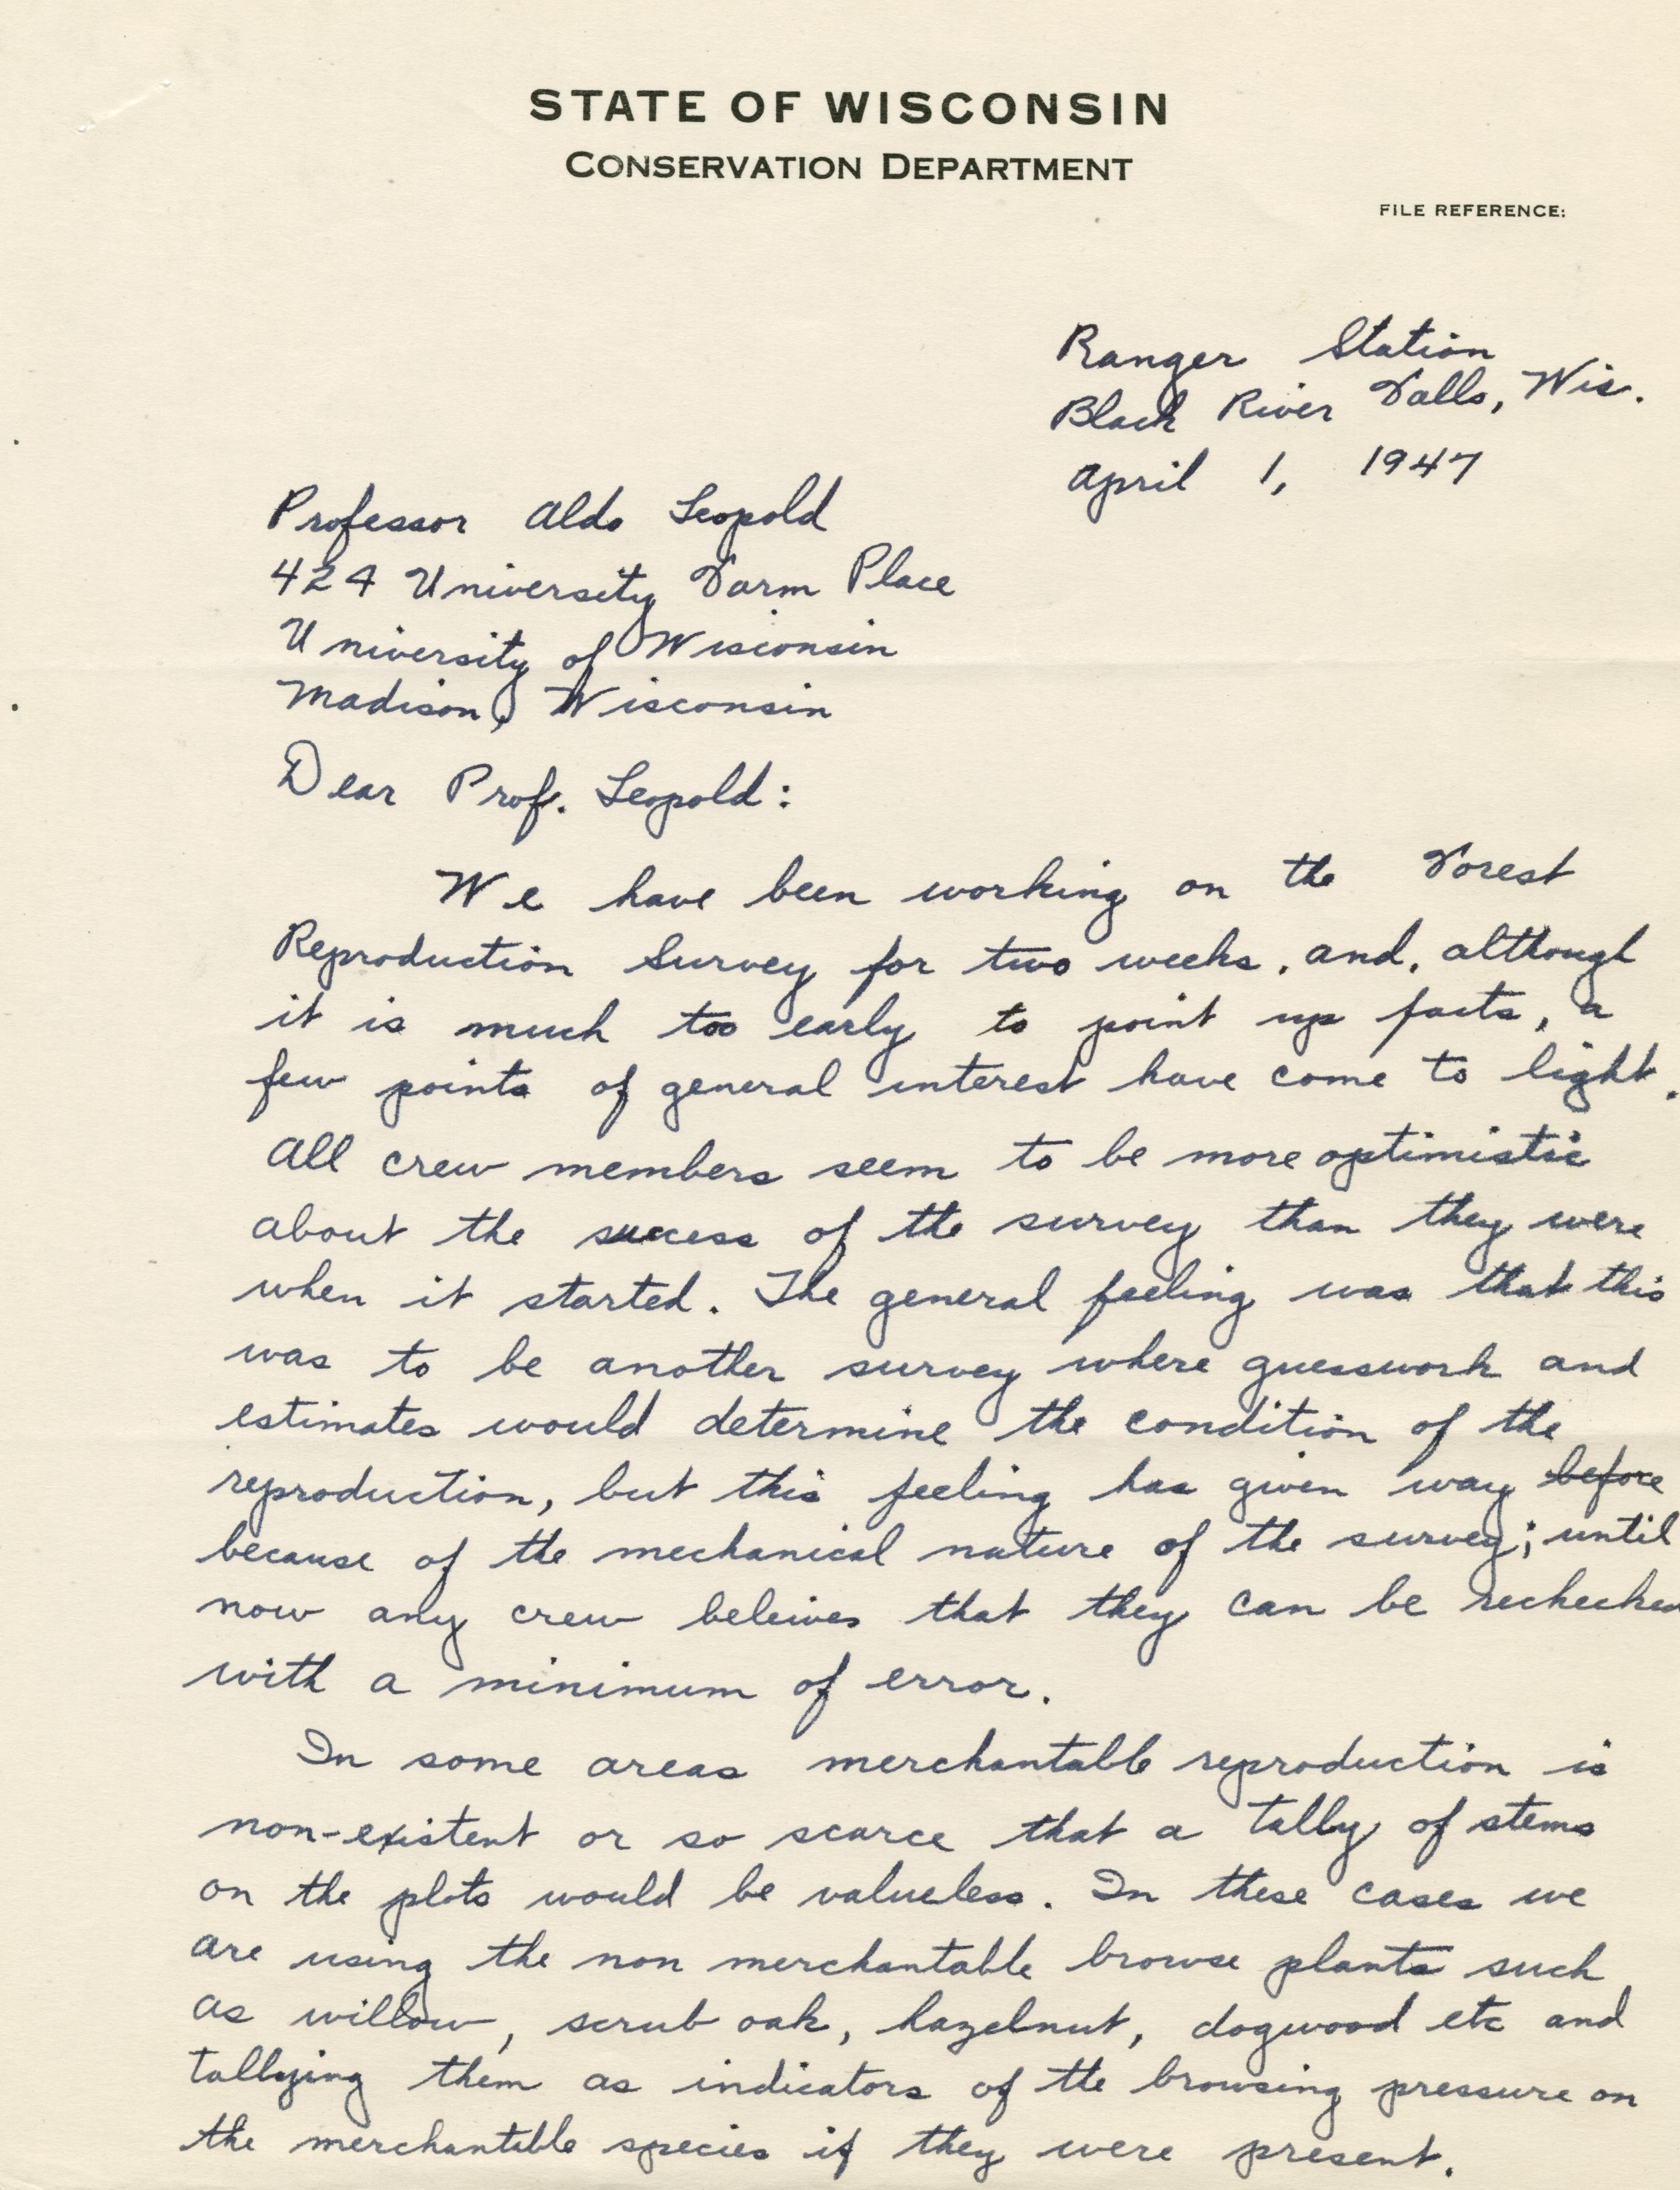 STATE OF WISCONSIN
CONSERVATION DEPARTMENT
FILE REFERENCE:
Ranger Station
Black River Falls, Wis.
April 1, 1947
Professor Aldo Leopold
424 University Farm Place
University of Wisconsin
Madison, Wisconsin
Dear Prof. Leopold:
We have been working on the Forest
Reproduction Survey for two weeks, and, although
it is much too early to point up facts, a
few points of general interest have come to light.
All crew members seem to be more optimistic
about the success of the survey than they were
when it started. The general feeling was that this
was to be another survey where guesswork and
estimates would determine the condition of the
reproduction, but this feeling has given way before
because of the mechanical nature of the survey; until
now any crew beleives that they can be rechecked
with a minimum of error.
In some areas merchantable reproduction is
non-existent or so scarce that a tally of stems
on the plots would be valueless. In these cases we
are using the non merchantable browse plants such
as willow, scrub oak, hazelnut, dogwood etc and
tallying them as indicators of the browsing pressure on
the merchantible species if they were present.